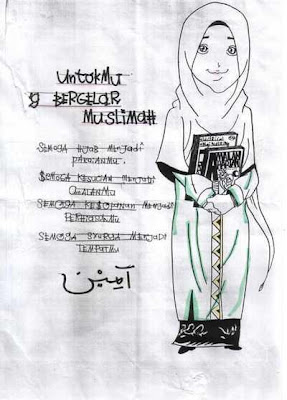 UntukMu
yg BERGELAR
MusliMah
SEMOGA HIJAB MENJADI
PAKAIANMU
SEMOGA KESUCIAN MENJADI
SEMOGA KESOPANAN MENJADI
SEMOGA SYURGA MENJADI
TEMPATMU
آمِيْن